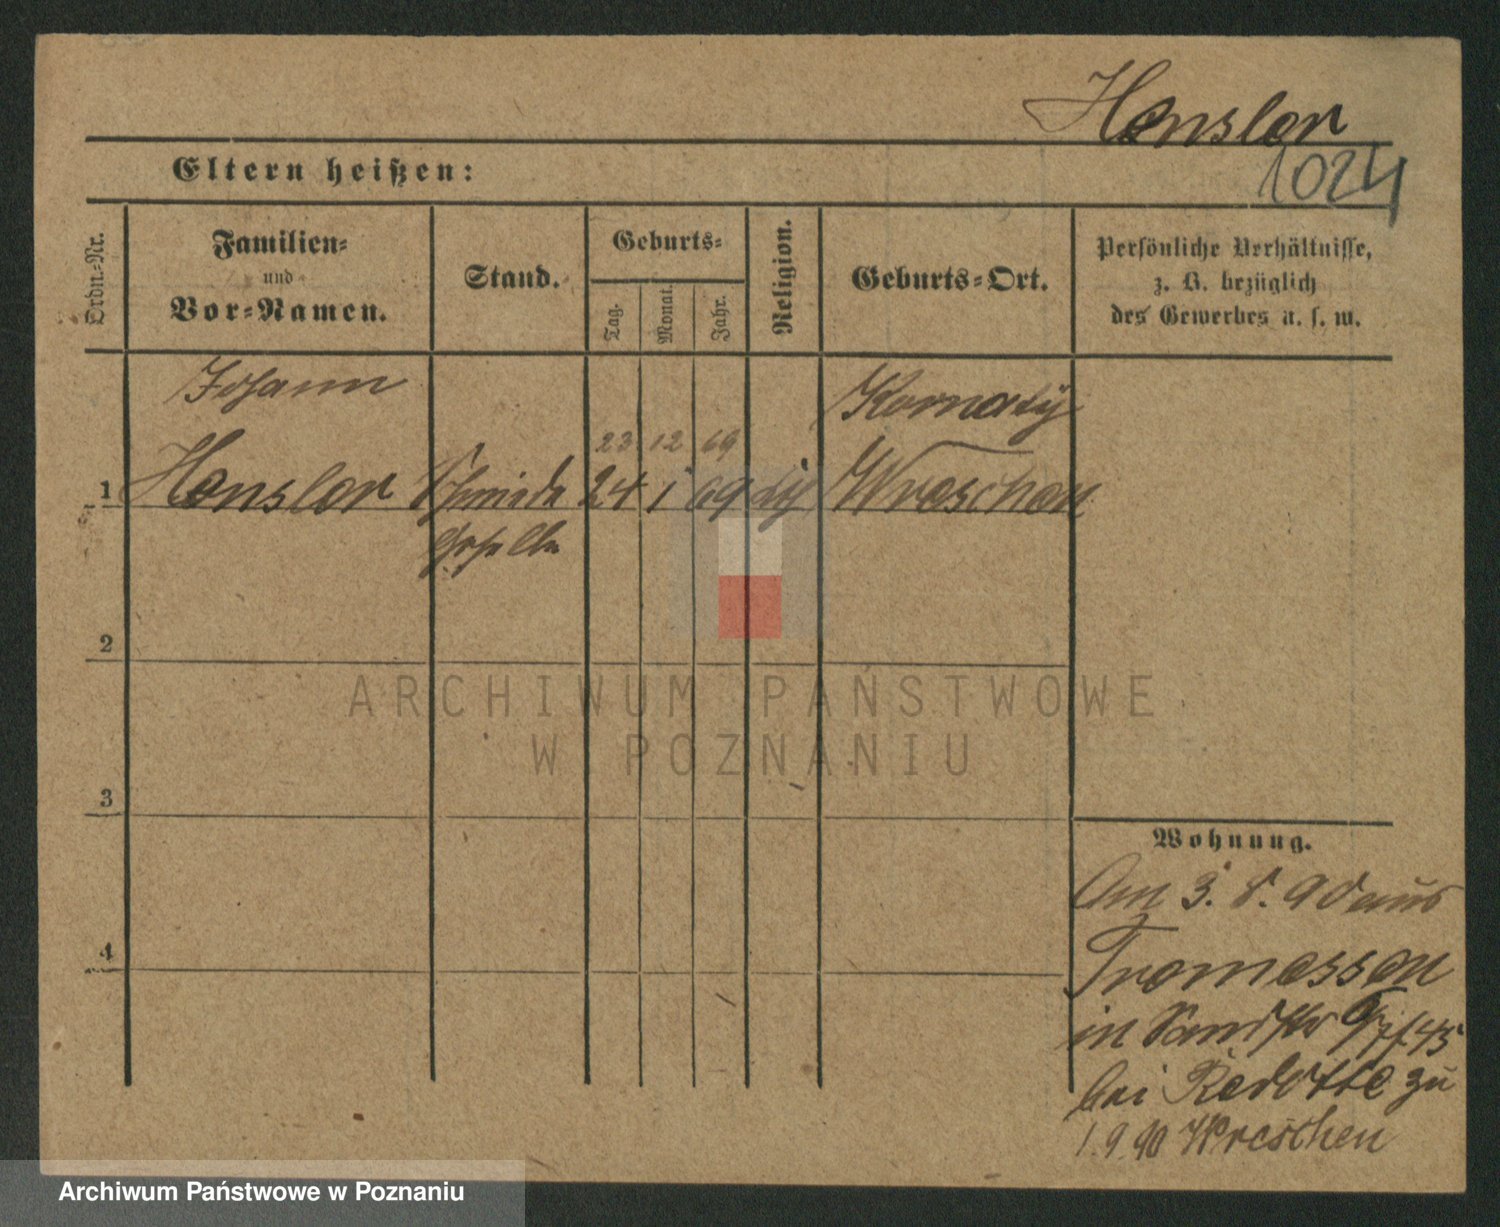 Hensler
1024
Eltern heißen:
Ordn.-Nr.
Familien-
und
Vor-Namen.
Stand.
Geburts-
Tag.
Monat.
Jahr.
Religion.
Geburts-Ort.
Persönliche Verhältnisse,
z. B. bezüglich
des Gewerbes u. s. w.
Johann
23 12 69
1 Hensler Schmiede 24 1 69 Wreschen
geselle
2
3
4
ARCHIWUM PAŃSTWOWE
W POZNANIU
Wohnung.
Am 3. 8. 90 aus
Tremessen
in Sandstr 45
bei zu
1.9.90 Wreschen
Archiwum Państwowe w Poznaniu